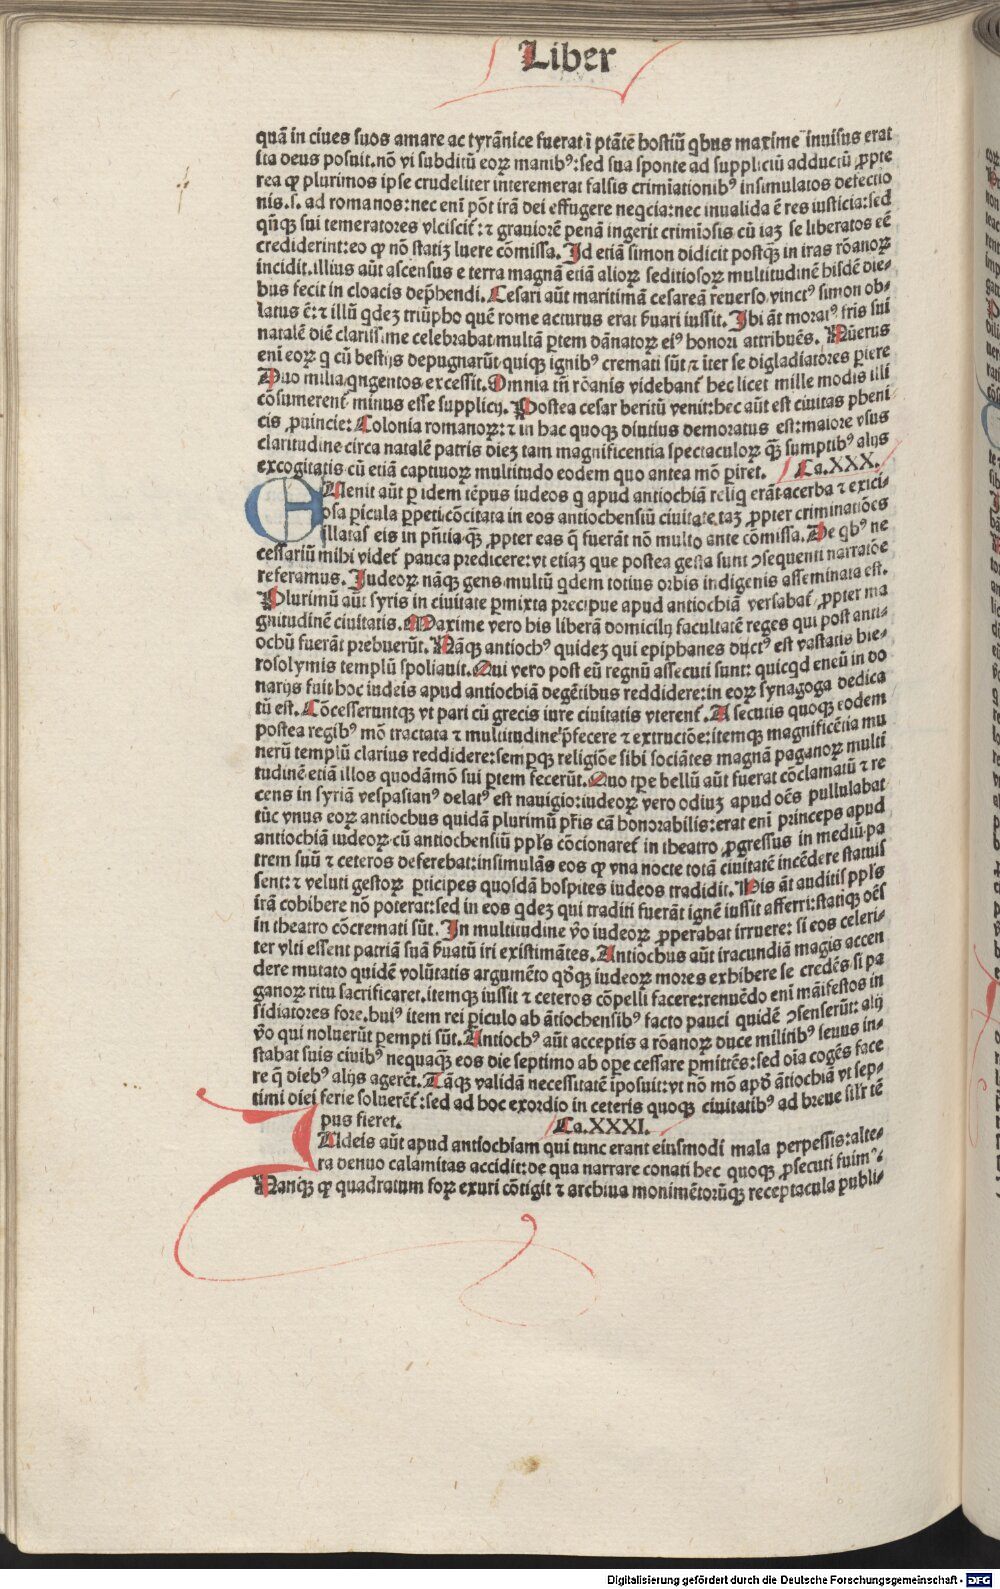 Liber
quā in ciues suos amare ac tyrānice fuerat ī ptātē hostiū qbus maxime inuisus erat
ita deus posuit.nō vi subditū eoꝝ manibꝰ:sed sua sponte ad suppliciū adductū ꝓpte
rea ꝙ plurimos ipse crudeliter interemerat falsis crimīationibꝰ insimulatos defectio
nis.s. ad romanos:nec enī pōt irā dei effugere neqcia:nec inualida ē res iusticia:sed
qn̄qꝫ sui temeratores vlciscit̄:⁊ grauiorē penā ingerit crimīosis cū iaꝫ se liberatos eē
crediderint:eo ꝙ nō statiꝫ luere cōmissa.Id etiā simon didicit postqꝫ in iras rōanoꝝ
incidit.illius aūt ascensus e terra magnā etiā alioꝝ seditiosoꝝ multitudinē hisdē die-
bus fecit in cloacis dep̄hendi.Cesari aūt maritimā cesareā reuerso vinctꝰ simon ob-
latus ē:⁊ illū qdeꝫ triūpho quē rome acturus erat ẜuari iussit.Ibi āt moratꝰ fr̄is sui
natalē diē clarissime celebrabat multā ꝑtem dānatoꝝ eiꝰ honori attribuēs.Nūerus
enī eoꝝ q cū bestijs depugnarūt quiqꝫ ignibꝰ cremati sūt ⁊ īter se digladiatores ꝑiere
Duo milia qngentos excessit.Omnia tn̄ rōanis videbant̄ hec licet mille modis illi
cōsumerent̄ minus esse supplicij.Postea cesar beritū venit:hec aūt est ciuitas pheni
cis ꝓuincie:Colonia romanoꝝ:⁊ in hac quoqꝫ diutius demoratus est:maiore vsus
claritudine circa natalē patris dieꝫ tam magnificentia spectaculoꝝ qꝫ̄ sumptibꝰ alijs
excogitatis cū etiā captiuoꝝ multitudo eodem quo antea mō ꝑiret. Ca.XXX.
Euenit aūt ꝑ idem tēpus iudeos q apud antiochiā reliq erāt acerba ⁊ exici-
osa ꝑicula ꝑpeti cōcitata in eos antiochensiū ciuitate taꝫ ꝓpter criminatiōes
illatas eis in pn̄tia qꝫ̄ ꝓpter eas q̄ fuerāt nō multo ante cōmissa.De qbꝰ ne
cessariū mihi videt̄ pauca predicere:vt etiaꝫ que postea gesta sunt ↄsequenti narratiōe
referamus. Iudeoꝝ nāqꝫ gens multū qdem totius orbis indigenis asseminata est.
Plurimū aūt syris in ciuitate ꝑmixta precipue apud antiochiā versabat̄ ꝓpter ma
gnitudinē ciuitatis.Maxime vero his liberā domicilij facultatē reges qui post anti-
ochū fuerāt prebuerūt.Nāqꝫ antiochꝰ quideꝫ qui epiphanes dictꝰ est vastatis hie-
rosolymis templū spoliauit.Qui vero post eū regnū assecuti sunt: quicqd eneū in do
narijs fuit hoc iudeis apud antiochiā degētibus reddidere:in eoꝝ synagoga dedica
tū est.Cōcesseruntqꝫ vt pari cū grecis iure ciuitatis vterent̄.A secutis quoqꝫ eodem
postea regibꝰ mō tractata ⁊ multitudine p̄fecere ⁊ extruciōe:itemqꝫ magnificētia mu
nerū templū clarius reddidere:semꝑqꝫ religiōe sibi sociātes magnā paganoꝝ multi
tudinē etiā illos quodāmō sui ꝑtem fecerūt.Quo tꝑe bellū aūt fuerat cōclamatū ⁊ re
cens in syriā vespasianꝰ delatꝰ est nauigio:iudeoꝝ vero odiuꝫ apud oēs pullulabat
tūc vnus eoꝝ antiochus quidā plurimū pr̄is cā honorabilis:erat enī princeps apud
antiochiā iudeoꝝ cū antiochensiū ppl̄s cōcionaret̄ in theatro ꝓgressus in mediū pa
trem suū ⁊ ceteros deferebat:insimulās eos ꝙ vna nocte totā ciuitatē incēdere statuis
sent:⁊ veluti gestoꝝ ꝑticipes quosdā hospites iudeos tradidit.His āt auditis ppl̄s
irā cohibere nō poterat:sed in eos qdeꝫ qui traditi fuerāt ignē iussit afferri:statiqꝫ oēs
in theatro cōcremati sūt.In multitudine v̄o iudeoꝝ ꝓperabat irruere: si eos celeri-
ter vlti essent patriā suā ẜuatū iri existimātes.Antiochus aūt iracundiā magis accen
dere mutato quidē volūtatis argumēto qd̄qꝫ iudeoꝝ mores exhibere se credēs si pa
ganoꝝ ritu sacrificaret.itemqꝫ iussit ⁊ ceteros cōpelli facere:renuēdo enī māifestos in
sidiatores fore.huiꝰ item rei ꝑiculo ab ātiochensibꝰ facto pauci quidē ↄsenserūt: alij
v̄o qui noluerūt ꝑempti sūt.Antiochꝰ aūt acceptis a rōanoꝝ duce militibꝰ seuus in-
stabat suis ciuibꝰ nequaqꝫ̄ eos die septimo ab oꝑe cessare ꝑmittēs:sed oīa cogēs face
re q̄ diebꝰ alijs agerēt.Tāqꝫ validā necessitatē īposuit:vt nō mō apd̄ ātiochiā vt sep-
timi diei ferie soluerēt̄:sed ad hoc exordio in ceteris quoqꝫ ciuitatibꝰ ad breue silr̄ tē
pus fieret. Ca.XXXI.
Iudeis aūt apud antiochiam qui tunc erant eiusmodi mala perpessis:alte-
ra denuo calamitas accidit:de qua narrare conati hec quoqꝫ ꝓsecuti fuimꝰ.
Nanqꝫ ꝙ quadratum foꝝ exuri cōtigit ⁊ archiua monimētorūqꝫ receptacula publi-
Digitalisierung gefördert durch die Deutsche Forschungsgemeinschaft - DFG